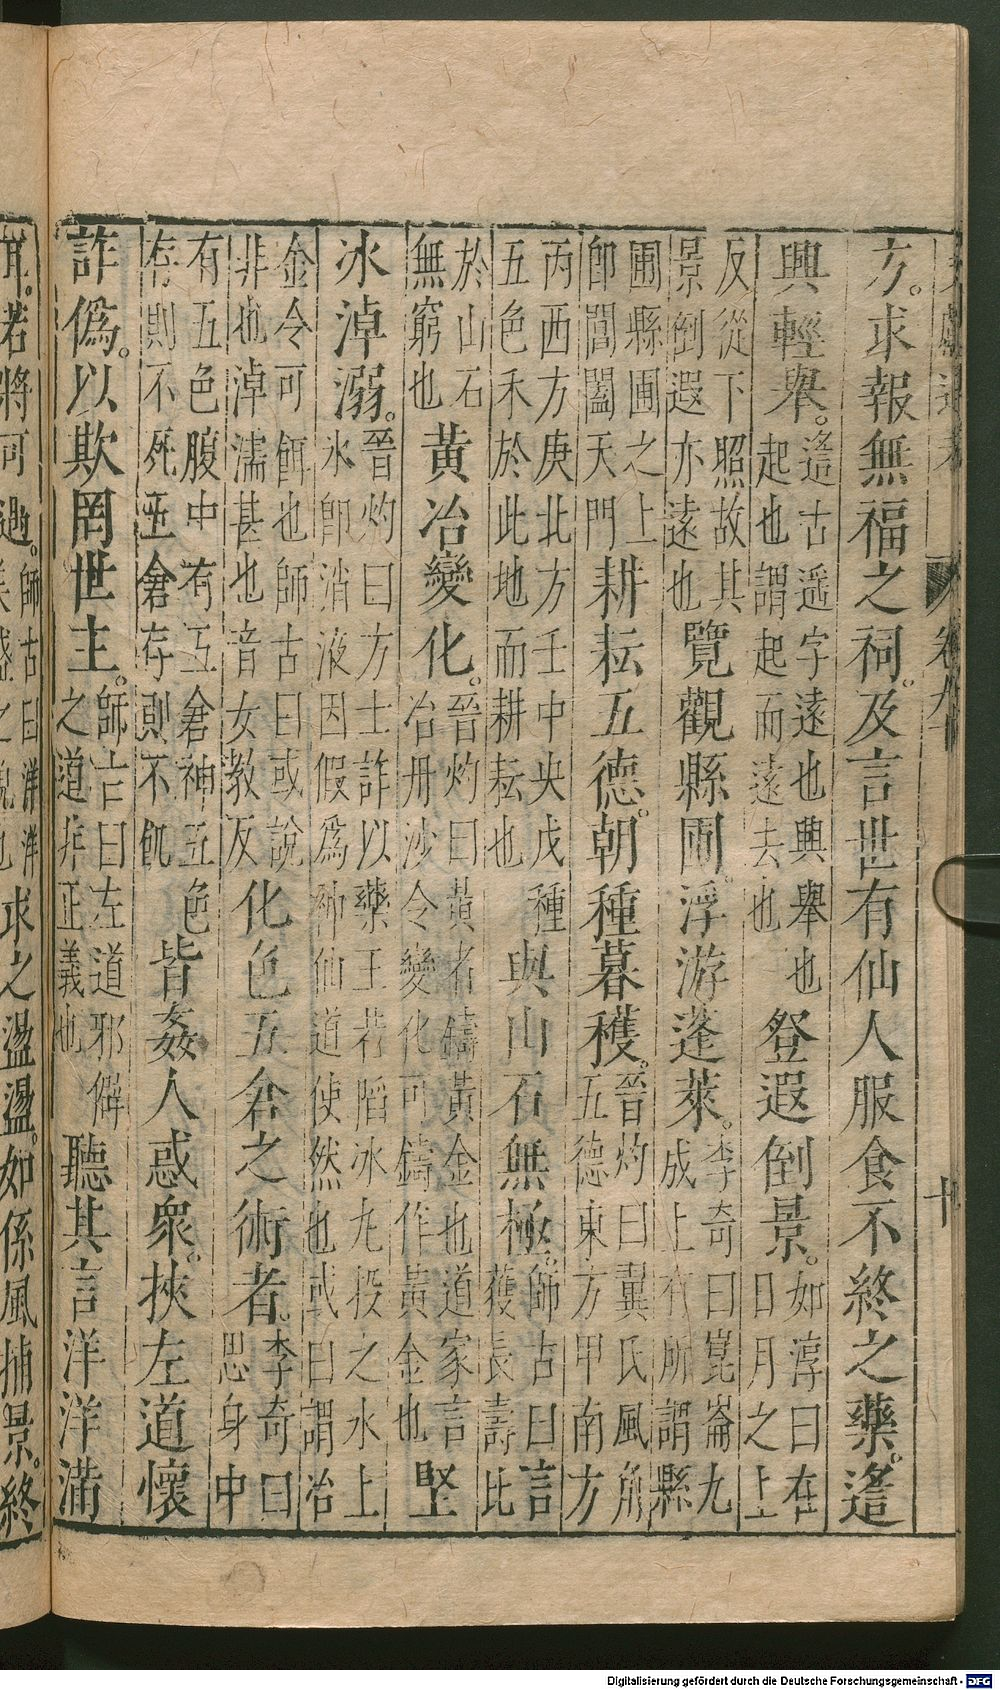 卷九 十
方。求報無福之祠。及言世有仙人服食不終之藥。遙
興輕舉。遙古遥字遠也興舉也起也謂起而遠去也登遐倒景。如淳曰在日月之上
反從下照故其景倒遐亦遠也覽觀縣圃。浮游蓬萊。李奇曰崑崙九成上有所謂縣
圃縣圃之上卽閶闔天門耕耘五德。朝種暮穫。晉灼曰翼氏風角五德東方甲南方
丙西方庚北方壬中央戊種五色禾於此地而耕耘也與山石無極。師古曰言獲長壽比
於山石無窮也黃冶變化。晉灼曰黃者鑄黃金也道家言冶丹沙令變化可鑄作黃金也堅
冰淖溺。晉灼曰方士詐以藥王若陷冰九投之水上氷卽消液因假爲神仙道使然也或曰謂冶
金令可餌也師古曰或說非也淖濡甚也音女教反化色五倉之術者。李奇曰思身中
有五色腹中有五倉神五色存則不死五倉存則不飢皆姦人惑衆。挾左道懷
詐僞。以欺罔世主。師古曰左道邪僻之道非正義也聽其言洋洋滿
耳。若將可遇。師古曰洋洋美盛之貌也求之盪盪。如係風捕景。終
Digitalisierung gefördert durch die Deutsche Forschungsgemeinschaft - DFG